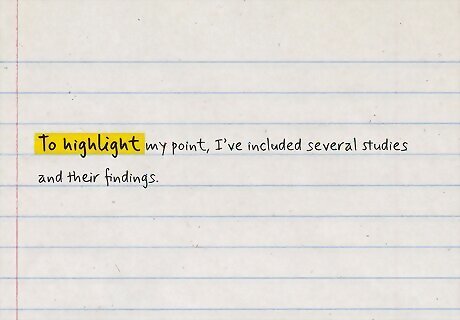 To highlight my point, I've included several studies
and their findings.